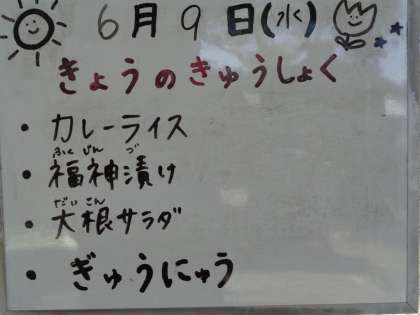 6月9日(水)
きょうのきゅうしょく
・カレーライス
ふくじんづ
・福神漬け
だいこん
・大根サラダ
・ぎゅうにゅう